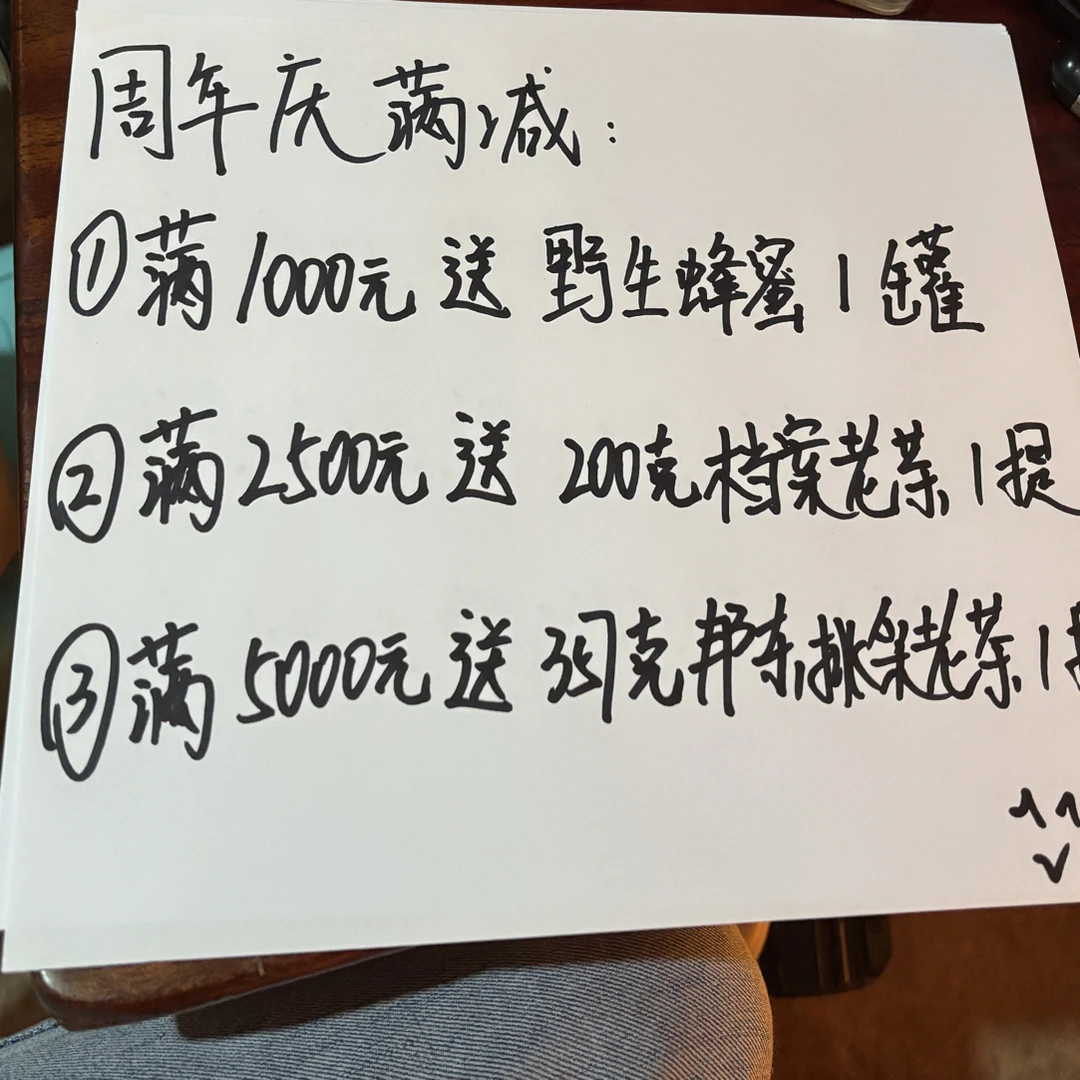 周年庆满减:
①满1000元送 野生蜂蜜1罐
②满2500元送 200克档案老茶1提
③满5000元送 357克邦东挑采老茶1